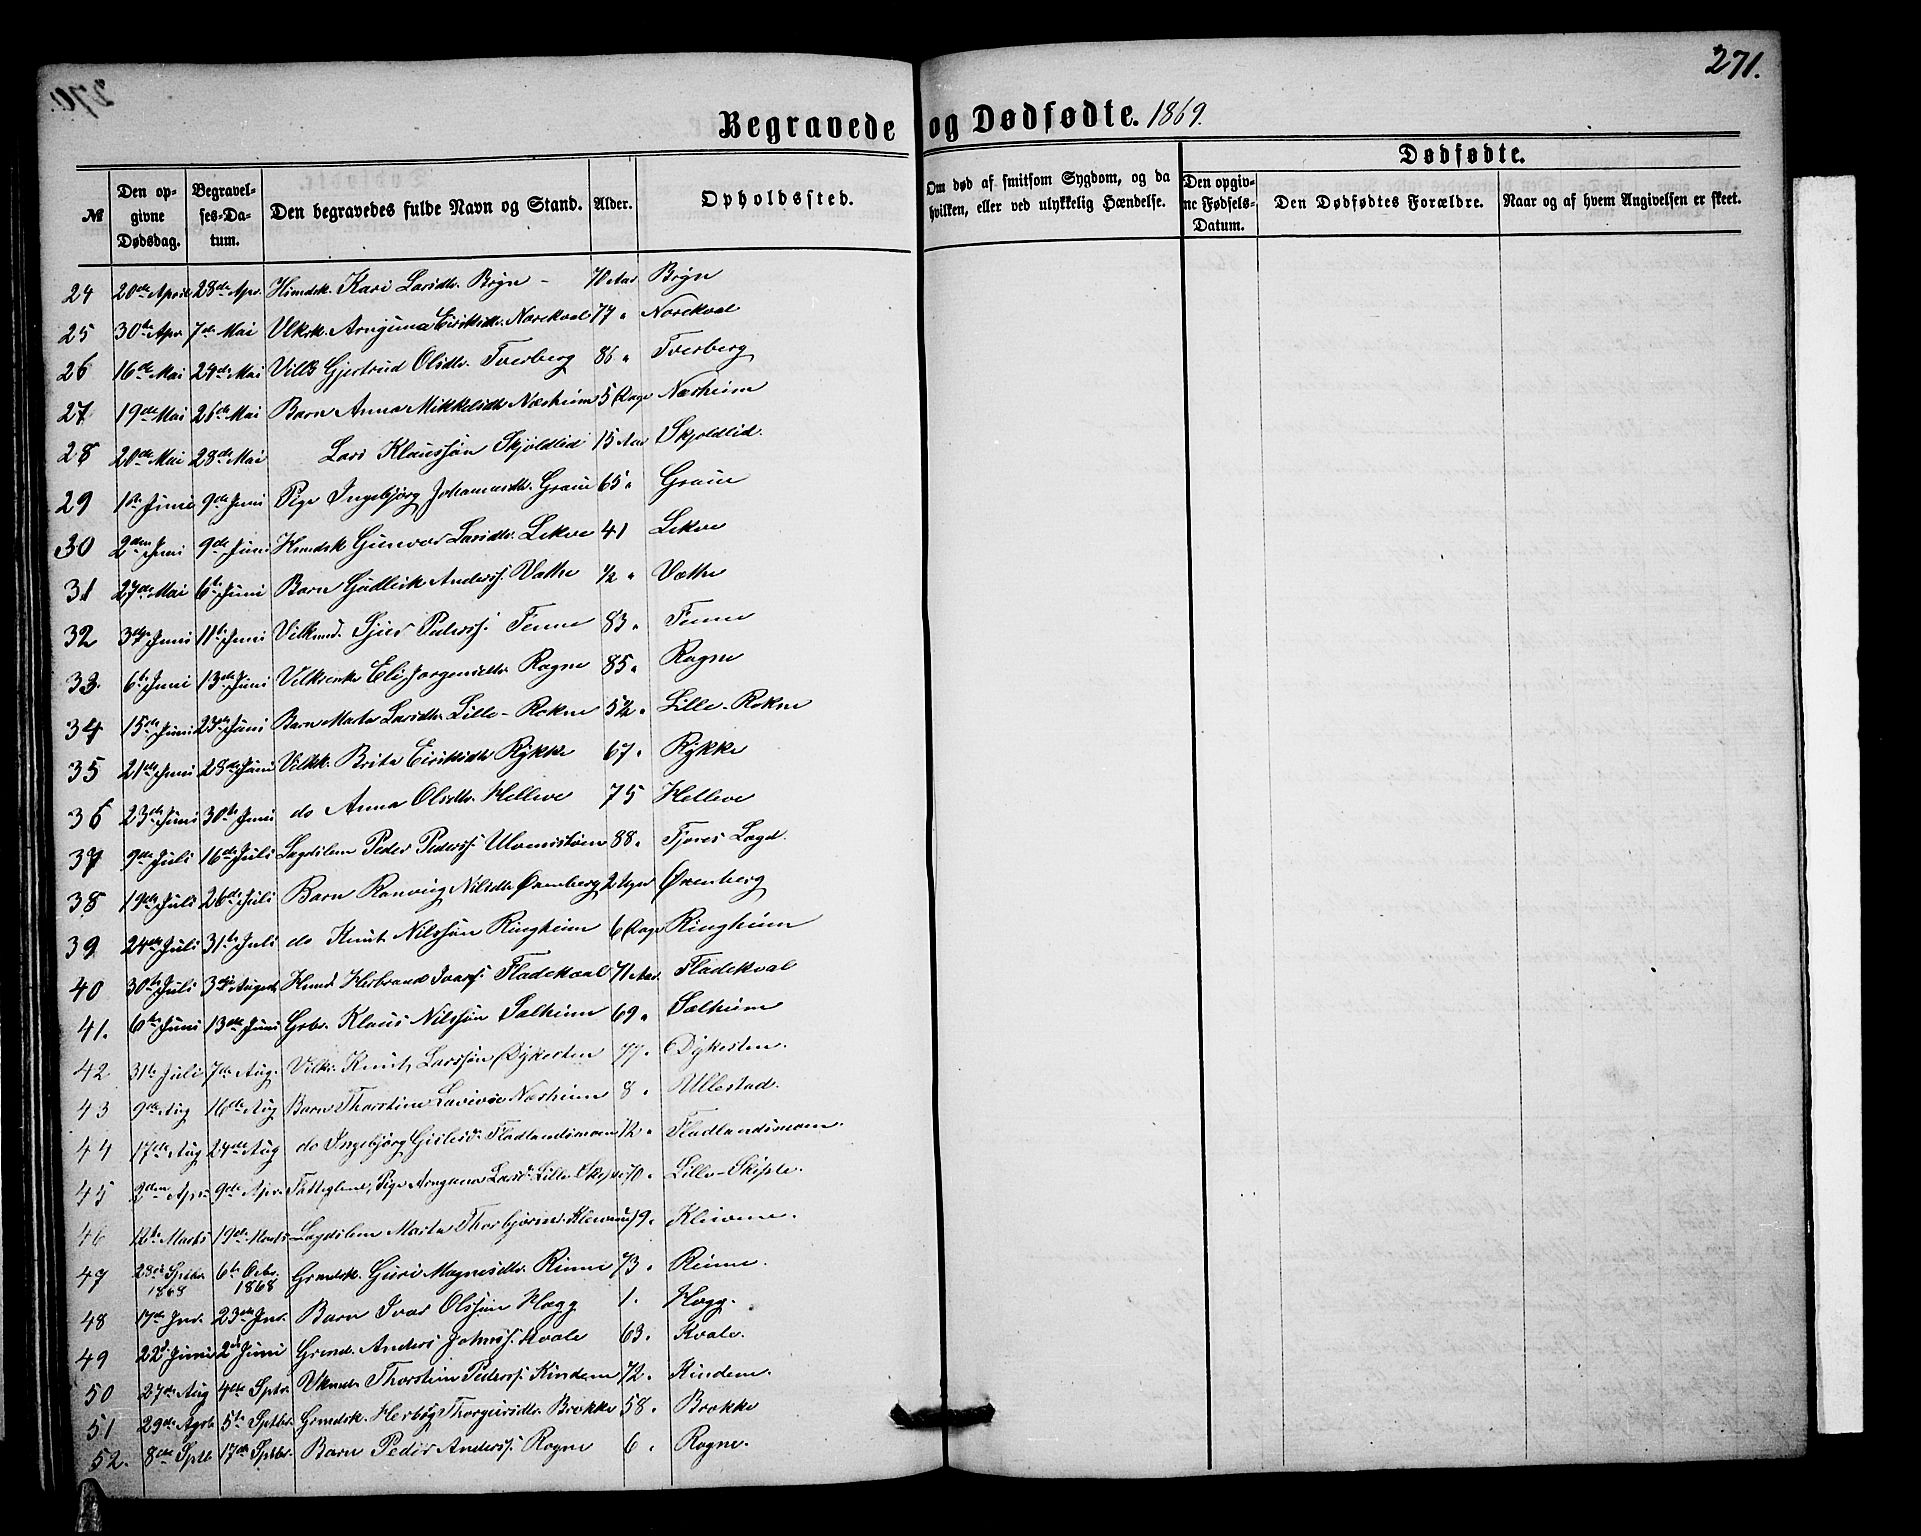 271.
Begravede og Dødfødte. 1869.
Dødfødte.
№ Den opgivne Dødsdag. Begravelses-Datum. Den begravedes fulde Navn og Stand. Alder. Opholdssted. Om død af smitsom Sygdom, og da hvilken, eller ved ulykkelig Hændelse. Den opgivne Fødsels-Datum. Den Dødfødtes Forældre. Naar og af hvem Angivelsen er skeet.
24 20de April 28de Apr. Huusk. Kari Larsdtr. Bøyn - 70 Aar Bøyn
25 30te Apr 7de Mai Vlksk. Arnguna Eiriksdtr. Norekval 77 " Norekval
26 16de Mai 24de Mai Vilk Gjertrud Olsdtr. Tverberg 86 " Tverberg
27 19de Mai 26de Mai Barn Anna Mikkelsdtr Næsheim 5 Dage Næsheim
28 20de Mai 28de Mai Lars Klaussøn Skjoldlid 15 Aar Skjoldlid.
29 1ste Juni 9de Juni Pige Ingebjørg Johannesdtr. Graue 65 " Graue
30 2den Juni 9de Juni Hmdsk Gunvor Larsdtr. Lekve 41 Lekve
31 27de Mai 6te Juni Barn Gudleik Anderss. Væthe ½ " Væthe
32 3die Juni 11te Juni Vilkmd. Sjur Pederss. Tenne 83 " Tenne
33. 6te Juni 13de Juni Vilksenke Eli Jørgensdtr. Rogne 85 " Rogne
34 15de Juni 23de Juni Barn Marta Larsdtr. Lille-Rokne 52 " Lille-Rokne
35 21de Juni 28de Juni Vilkk. Brita Eiriksdtr Rykke 67 " Rykke
36 23de Juni 30te Juni do Anna Olsdtr. Helleve 75 Helleve
37 9de Juli 16de Juli Lægdslem Peder Pederss. Ulvenstøen 88 " Tjøres Lægd.
38 19de Juli 26de Juli Barn Ranveig Nilsdtr Øvenberg 2 Uger Øvenberg
39 24de Juli 31te Juli do Knut Nilssøn Ringheim 6 Dage Ringheim
40 30te Juli 3die August Huusd Herbrand Ivarss. Fladekval 71 Aar Fladekval
41. 6te Juni 13de Juni Grbr. Klaus Nilssøn Sælheim 69 " Sælheim
42 31te Juli 7de Aug. Vilkr. Knut Larssøn Dykesten 77 " Dykesten.
43 9de Aug 16de Aug Barn Thorstine Næsheim 8 " Ullestad.
44 17de Aug 24de Aug do Ingebjørg Gislesd. Fladlandsmoen 12 " Fladlandsmoen.
45 2den Apr 9de Apr. Fattiglem, Pige Arnguna Larsd. Lille-Skiple 70 " Lille-Skiple.
46 12te Marts 19de Marts Lægdslem Marta Thorbjørnsd. Kleivene 79 " Kleivene.
47 28de Sptbr. 1868 6te Ocbr. 1868 Grmdsk. Guri Magnesdtr. Rinne 73 " Rinne.
48 17de Jnr. 23de Jnr. Barn Ivar Olssøn Hægg 1. Hægg.
49 22d Juni 2d Juni Grmd. Anders Johnss. Kvale 63 " Kvale.
50 27de Aug 4de Sptr. Vkmd. Thorstein Pederss. Rindem 72 " Rindem.
51 29de Agsb. 5te Sptbr. Grmdsk. Herborg Thorgersdtr. Brekke 58 " Brekke
52. 8de Sptb 17de Sptbr. Barn Peder Anderss. Rogne 6 " Rogne.